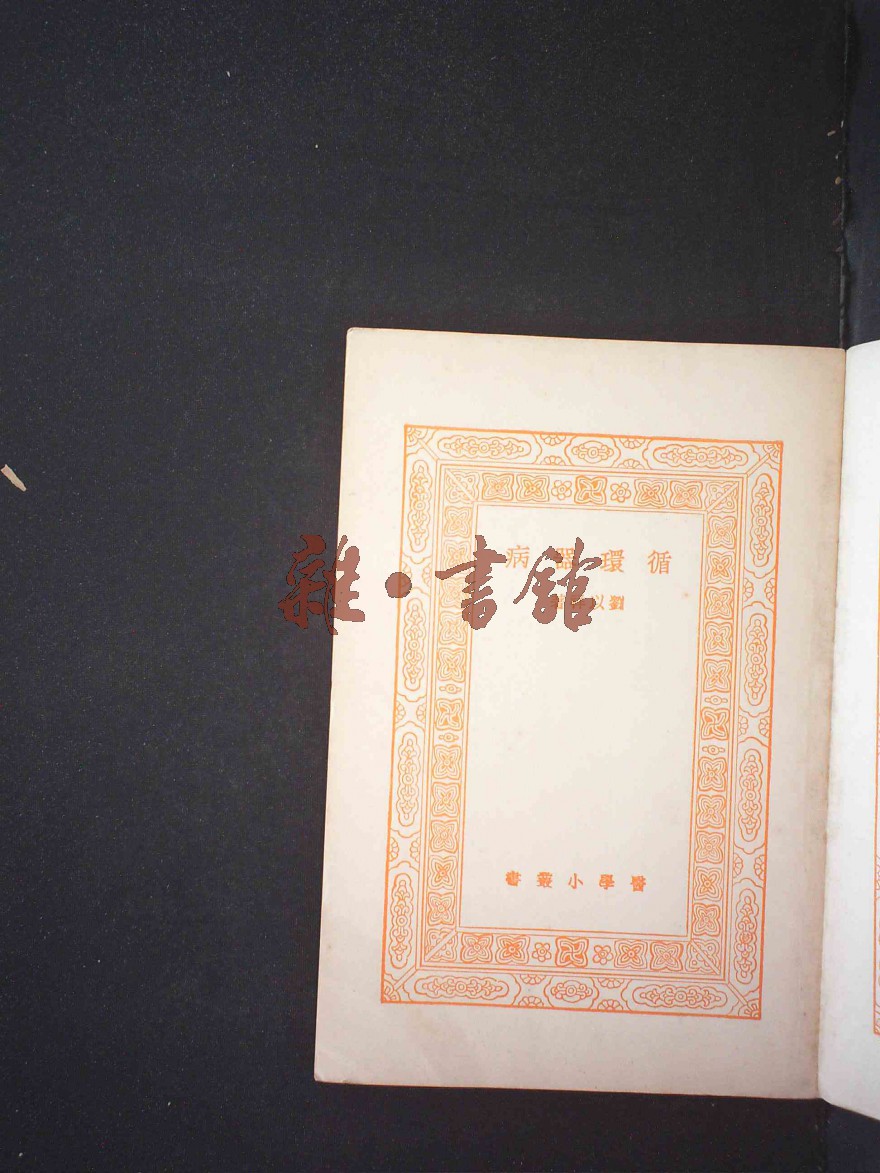 循環器病
劉以
醫學小叢書
雜·書館